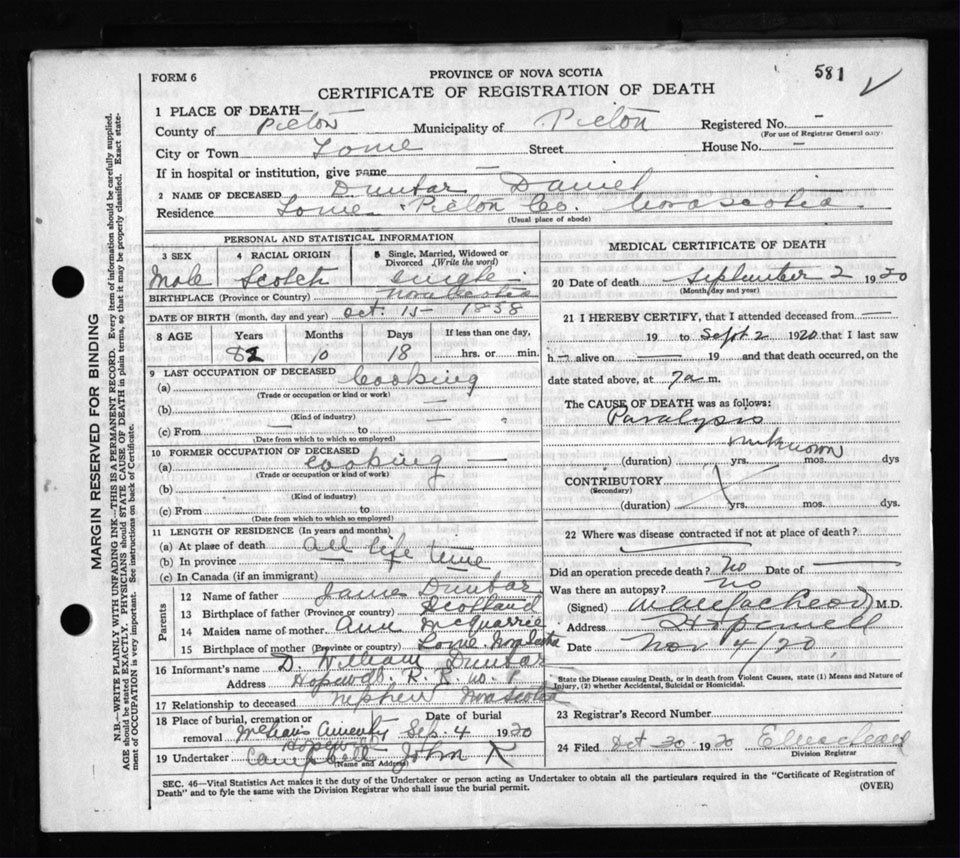 581
FORM 6
PROVINCE OF NOVA SCOTIA
CERTIFICATE OF REGISTRATION OF DEATH
1 PLACE OF DEATH—
County of Pictou Municipality of Pictou Registered No. –
(For use of Registrar General only.)
City or Town Lorne Street House No. –
If in hospital or institution, give name —
2 NAME OF DECEASED Dunbar Daniel
Residence Lorne Pictou Co. Nova Scotia
(Usual place of abode)
PERSONAL AND STATISTICAL INFORMATION
3 SEX 4 RACIAL ORIGIN 5 Single, Married, Widowed or Divorced (Write the word)
Male Scotch single
BIRTHPLACE (Province or Country) Nova Scotia
DATE OF BIRTH (month, day and year) Oct. 15 - 1838
8 AGE Years Months Days If less than one day,
82 10 18 hrs. or min.
9 LAST OCCUPATION OF DECEASED
(a) Cooking
(Trade or occupation or kind of work)
(b) — —
(Kind of industry)
(c) From — to —
(Date from which to which so employed)
10 FORMER OCCUPATION OF DECEASED
(a) cooking —
(Trade or occupation or kind of work)
(b)
(Kind of industry)
(c) From to
(Date from which to which so employed)
11 LENGTH OF RESIDENCE (In years and months)
(a) At place of death all life time
(b) In province —
(c) In Canada (if an immigrant)
Parents
12 Name of father James Dunbar
13 Birthplace of father (Province or country) Scotland
14 Maiden name of mother Ann McQuarrie
15 Birthplace of mother (Province or country) Lorne Nova Scotia
16 Informant's name D. William Dunbar
Address Hopewell R. R. No. 1
17 Relationship to deceased nephew Nova Scotia
18 Place of burial, cremation or removal Date of burial
Sep. 4 1920
Hopewell
19 Undertaker Campbell John
(Name and Address)
MEDICAL CERTIFICATE OF DEATH
20 Date of death September 2 1920
(Month, day and year)
21 I HEREBY CERTIFY, that I attended deceased from —
19 to Sept 2 1920 that I last saw
h— alive on — 19 and that death occurred, on the
date stated above, at 7 a m.
The CAUSE OF DEATH was as follows:
Paralysis
unknown
(duration) yrs. mos. dys
CONTRIBUTORY
(Secondary)
(duration) yrs. mos. dys.
22 Where was disease contracted if not at place of death?
Did an operation precede death? No Date of —
Was there an autopsy? no
(Signed) M.D.
Address Hopewell
Date Nov 4/20.
State the Disease causing Death, or in death from Violent Causes, state (1) Means and Nature of
Injury, (2) whether Accidental, Suicidal or Homicidal.
23 Registrar's Record Number
24 Filed Oct 30 1920
Division Registrar
SEC. 46—Vital Statistics Act makes it the duty of the Undertaker or person acting as Undertaker to obtain all the particulars required in the "Certificate of Registration of
Death" and to fyle the same with the Division Registrar who shall issue the burial permit.
(OVER)
MARGIN RESERVED FOR BINDING
N.B.—WRITE PLAINLY WITH UNFADING INK—THIS IS A PERMANENT RECORD. Every item of information should be carefully supplied.
AGE should be stated EXACTLY. PHYSICIANS should STATE CAUSE OF DEATH in plain terms, so that it may be properly classified. Exact state-
ment of OCCUPATION is very important. See instructions on back of Certificate.